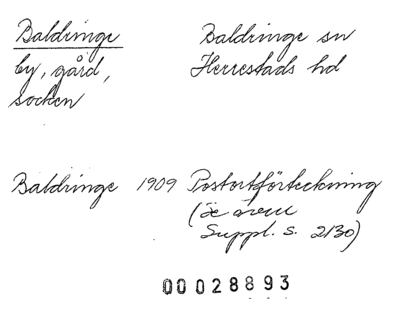 Baldringe
by, gård,
socken
Baldringe sn
Herrestads hd
Baldringe 1909 Postortförteckning
(se även
Suppl. s. 2130)
00028893